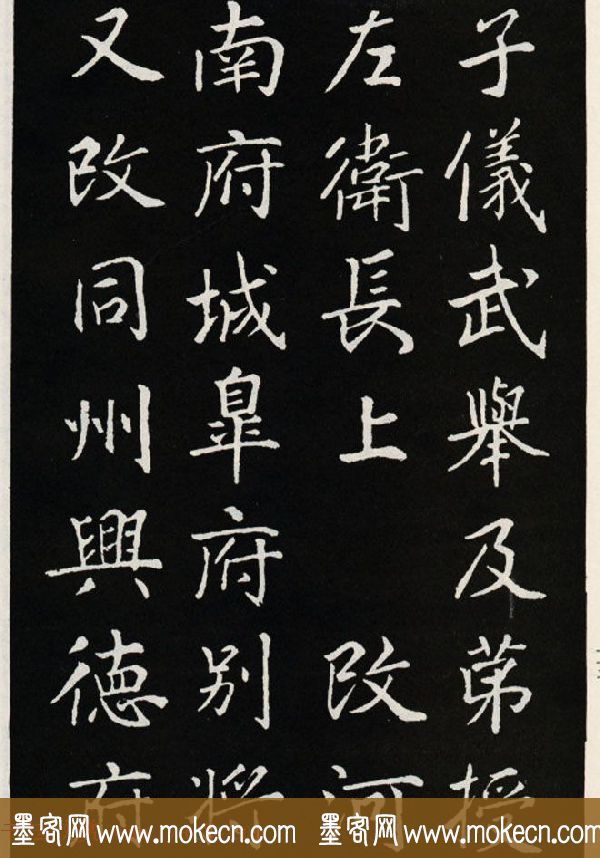 子儀武舉及苐授
左衛長上 改河
南府城皐府别將
又改同州興徳府
墨客网 www.mokecn.com 墨客网 www.mokecn.com